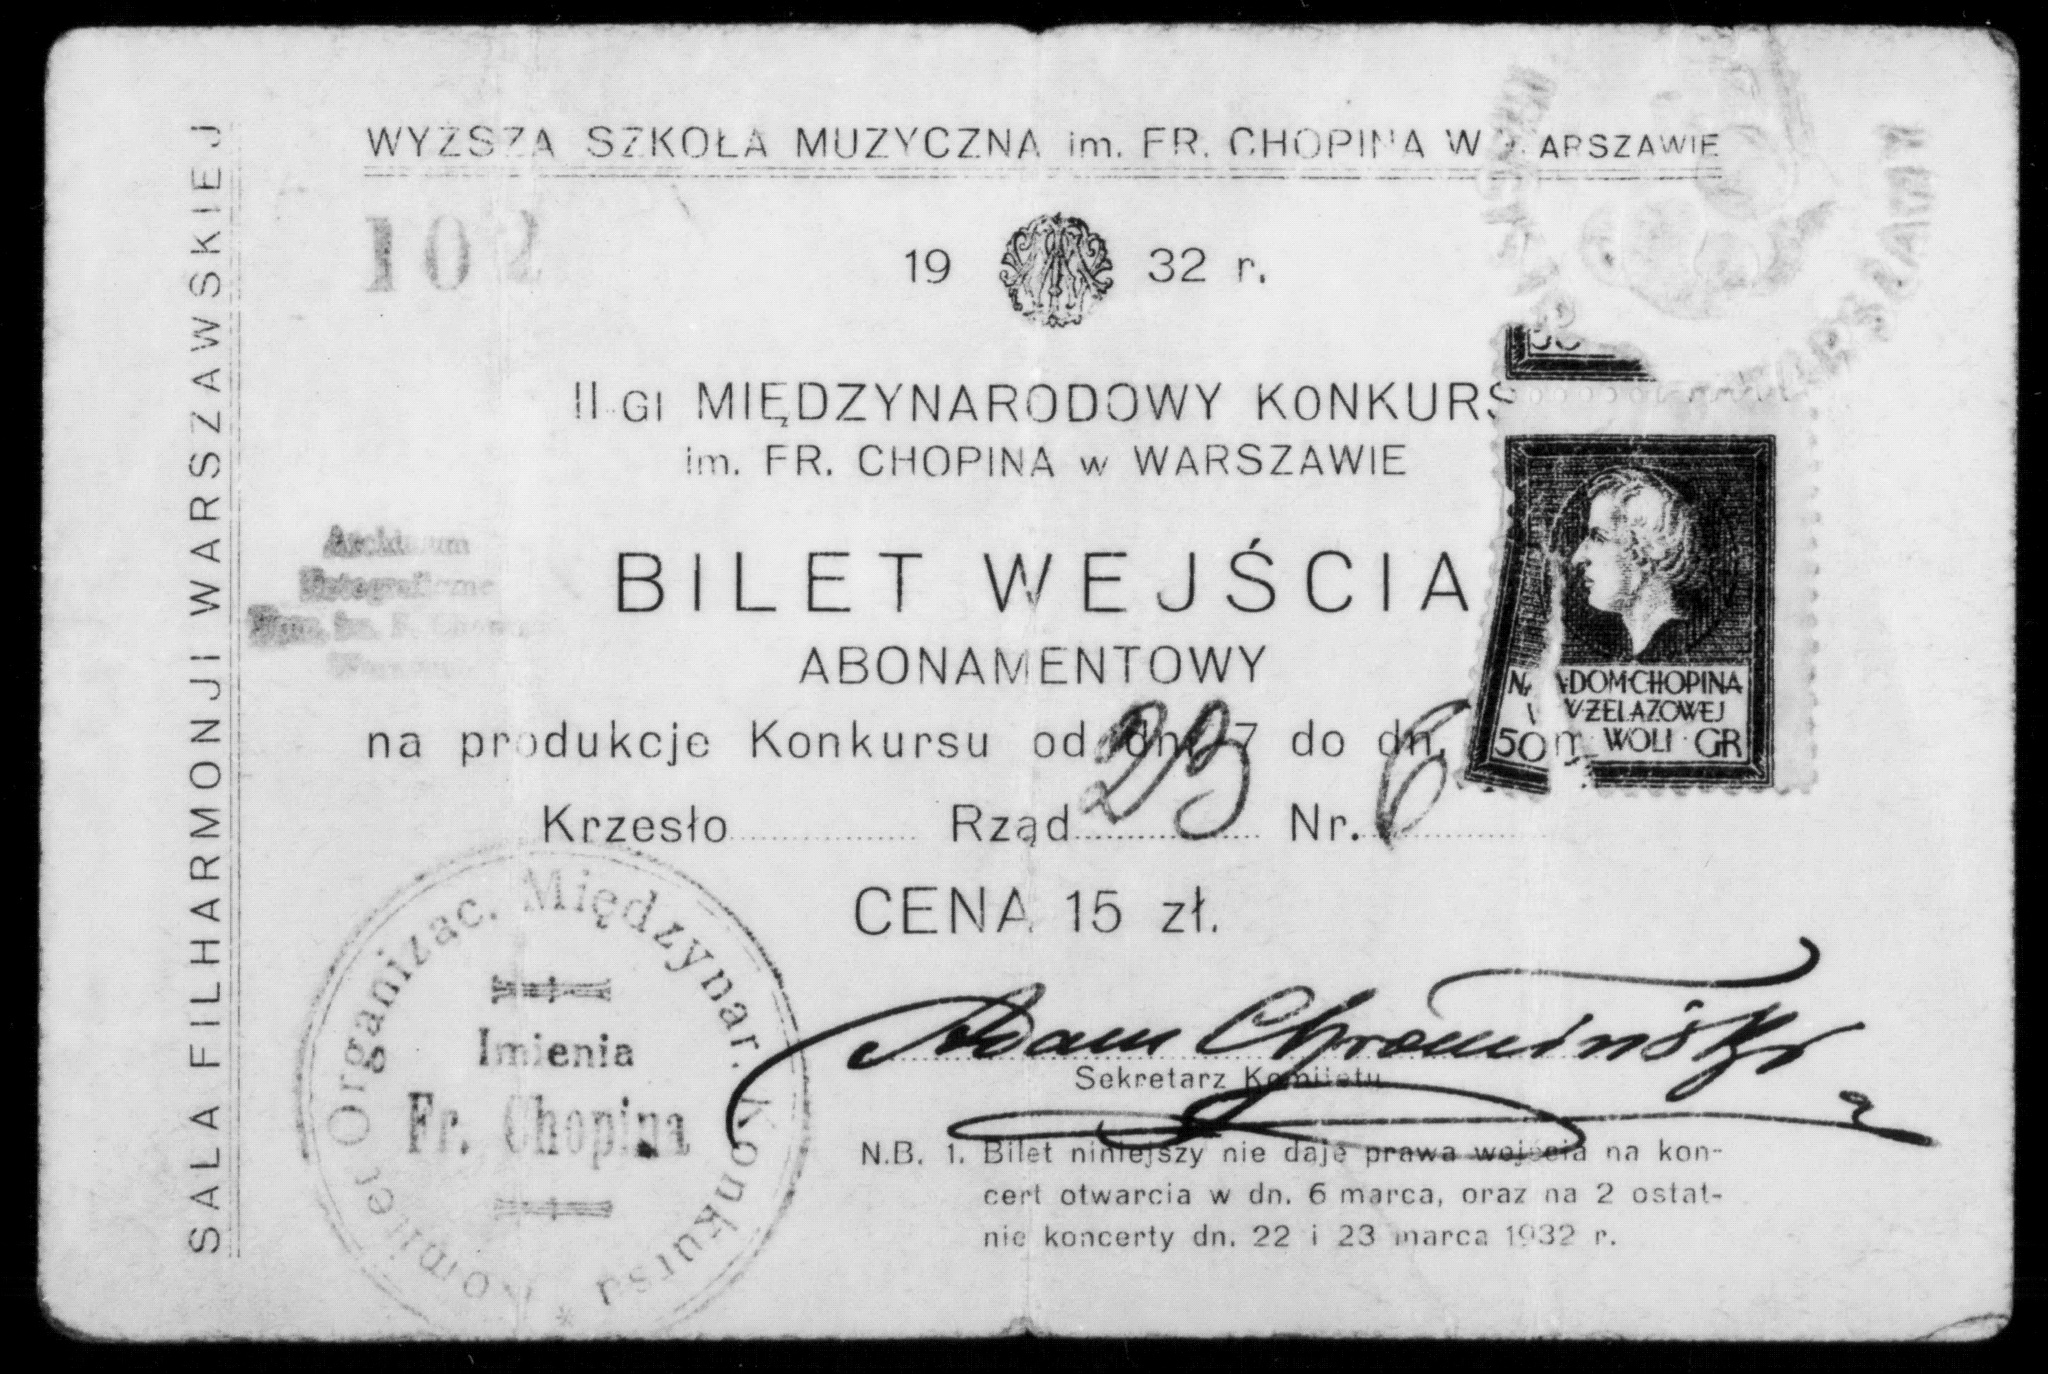 SALA FILHARMONJI WARSZAWSKIEJ
WYŻSZA SZKOŁA MUZYCZNA im. FR. CHOPINA W WARSZAWIE
102
19 32 r.
II GI MIĘDZYNARODOWY KONKURS
im. FR. CHOPINA w WARSZAWIE
BILET WEJŚCIA
ABONAMENTOWY
na produkcje Konkursu od dn. 7 do dn.
Krzesło Rząd 23 Nr. 6
CENA 15 zł.
NA DOM CHOPINA
W ŻELAZOWEJ
50 WOLI GR
Komitet Organizac. Międzynar. Konkursu *
Imienia
Fr. Chopina
Adam Chromiński
Sekretarz Komitetu
N.B. 1. Bilet niniejszy nie daje prawa wejścia na kon-
cert otwarcia w dn. 6 marca, oraz na 2 ostat-
nie koncerty dn. 22 i 23 marca 1932 r.